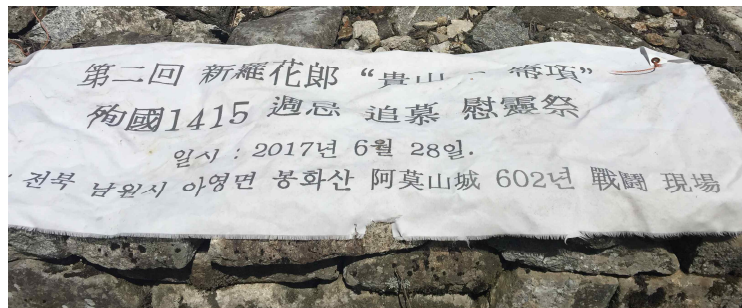 第二回 新羅花郎 “貴山 - 箒項”
殉國1415 週忌 追慕 慰靈祭
일시 : 2017년 6월 28일.
전북 남원시 아영면 봉화산 阿莫山城 602년 戰鬪 現場